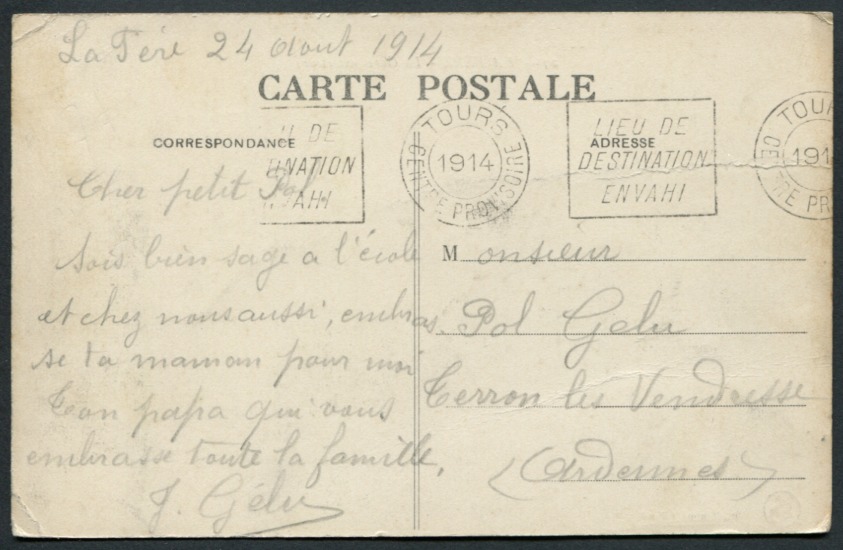 La Fère 24 Aout 1914
CARTE POSTALE
CORRESPONDANCE
U DE
TINATION
VAHI
TOURS
1914
CENTRE PROVISOIRE
LIEU DE
DESTINATION
ENVAHI
ADRESSE
TOUR
191
CE
RE PR
Cher petit Pol
Sois bien sage a l'école
et chez nous aussi, embras
se ta maman pour moi
Ton papa qui vous
embrasse toute la famille.
J. Gélu
Monsieur
Pol Gelu
Terron les Vendresse
(Ardennes)